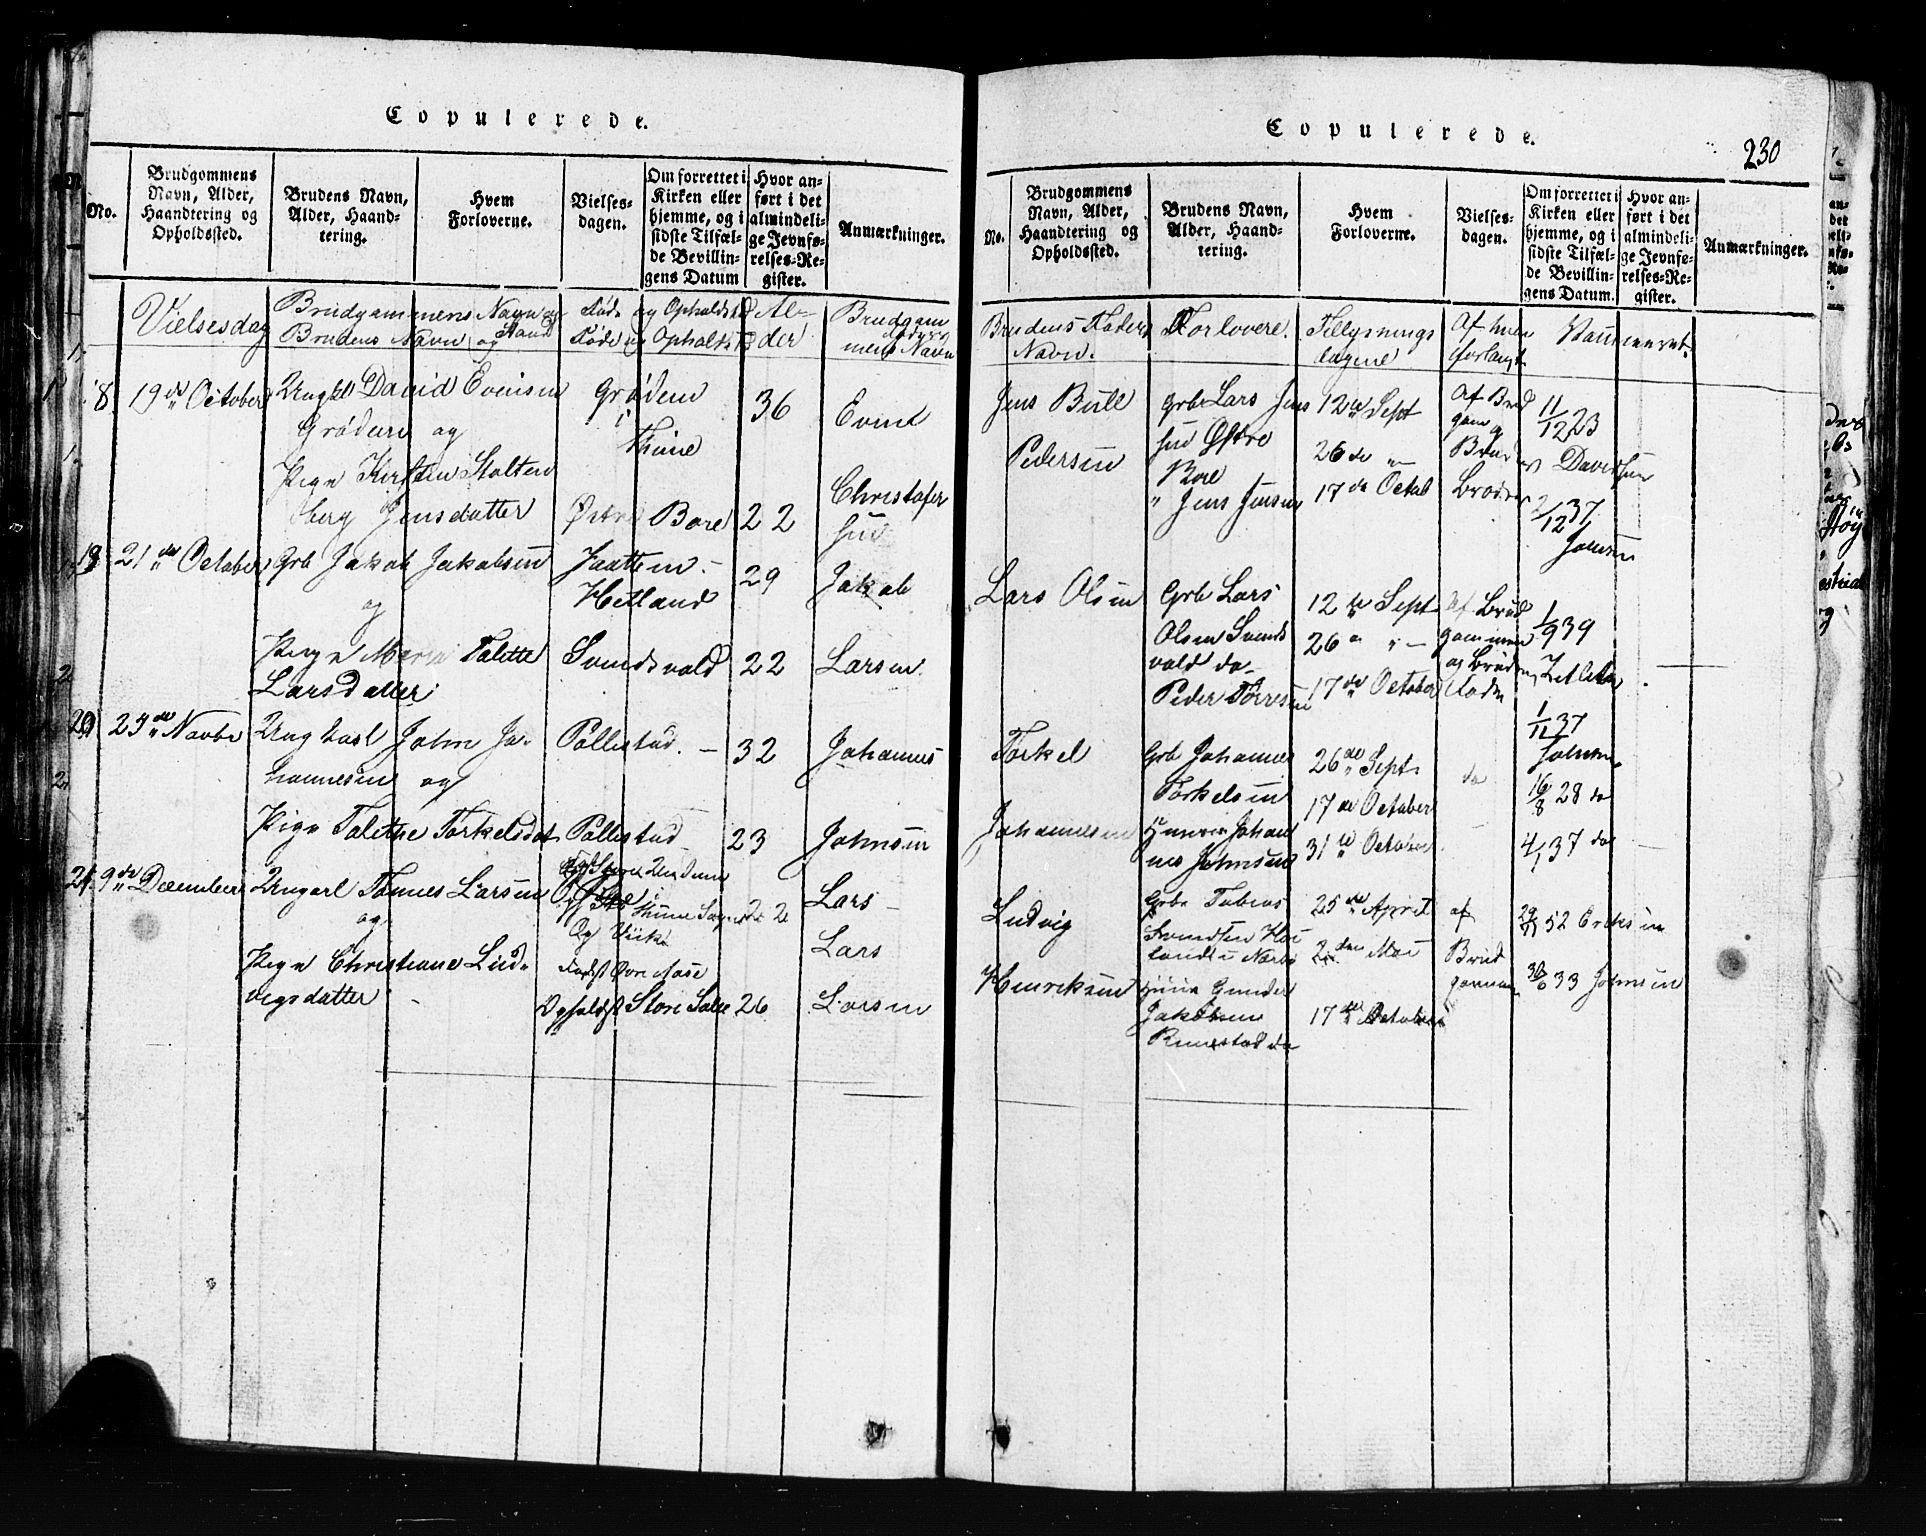 Copulerede.
No.
Brudgommens
Navn, Alder,
Haandtering og
Opholdssted.
Brudens Navn,
Alder, Haand-
tering.
Hvem
Forloverne.
Vielses-
dagen.
Om forrettet i
Kirken eller
hjemme, og i
sidste Tilfæl-
de Bevillin-
gens Datum
Hvor an-
ført i det
almindeli-
ge Jevnfø-
relses-Re-
gister.
Anmærkninger.
Vielsesdag
Brudgammens Navn og
Brudens Navn og Stand
Føde og Opholdst
Føde og Opholdst
Al-
der
Brudgam
mens Navn
8 19de October
Ungkl David Evensen
Grødem og
Pige Kirsten Stolten
berg Jensdatter
Grødem
i
Østre Bore
36
22
Event
Christofer
sen
19 21de October
Grb Jakob Jakobsen
og
Pige Maria Talette
Larsdatter
Jaatten -
Hetland
Svendsvold
29
22
Jakob
Larsen
20 23de Novbr
Ungkarl John Jo-
hannesen og
Pige Talethe Torkelsdat
Pollestad. -
Pollestad
32
23
Johannes
Johnsen
21. 9de December
Ungarl Tønnes Larsen
og
Pige Christiane Lud-
vigsdatter
Og
Fødst Øvre Aase
Opholdst Store Sale
22
26
Lars -
Lars
Larsen
Copulerede.
230
No.
Brudgommens
Navn, Alder,
Haandtering og
Opholdssted.
Brudens Navn,
Alder, Haand-
tering.
Hvem
Forloverne.
Vielses-
dagen.
Om forrettet i
Kirken eller
hjemme, og i
sidste Tilfæl-
de Bevillin-
gens Datum.
Hvor an-
ført i det
almindeli-
ge Jevnfø-
relses-Re-
gister.
Anmærkninger.
Brudens Faders
Navn.
Forlovere.
Tillysnings
dagene
Af hvem
forlangt
Vaccineret.
Jens Bull
Pedersen
Grb Lars Jens
sen Østre
Bore
" Jens Jensen
12te Sept
26de "
17de Octob
Af Brud
gom og
Brud
Broder
11/12 23
Davidsen
2/12 37
Lars Olsen
Grb Lars
Olsen Svends
vold do
Peder Torresen
12te Sept
26 " " -
17de October
Af Brud
gommen
og Brudens
Fader
1/9 39
Zetlitz
1/11 37
Torkel
Johannesen
Grb Johannes
Torkelsen
Johan
nes Johnsen
26de Sept.
17de October
31te October
do
16/8 28 do
4/1 37 do
Ludvig
Henriksen
Grb Tobias
Svendsen Hou
land i Nærbø
Gunder
Jakobsen
Rimestad do
25de April
2den Mai
17de October
af
Brud
gommen
52 Eriksen
33 Johnsen